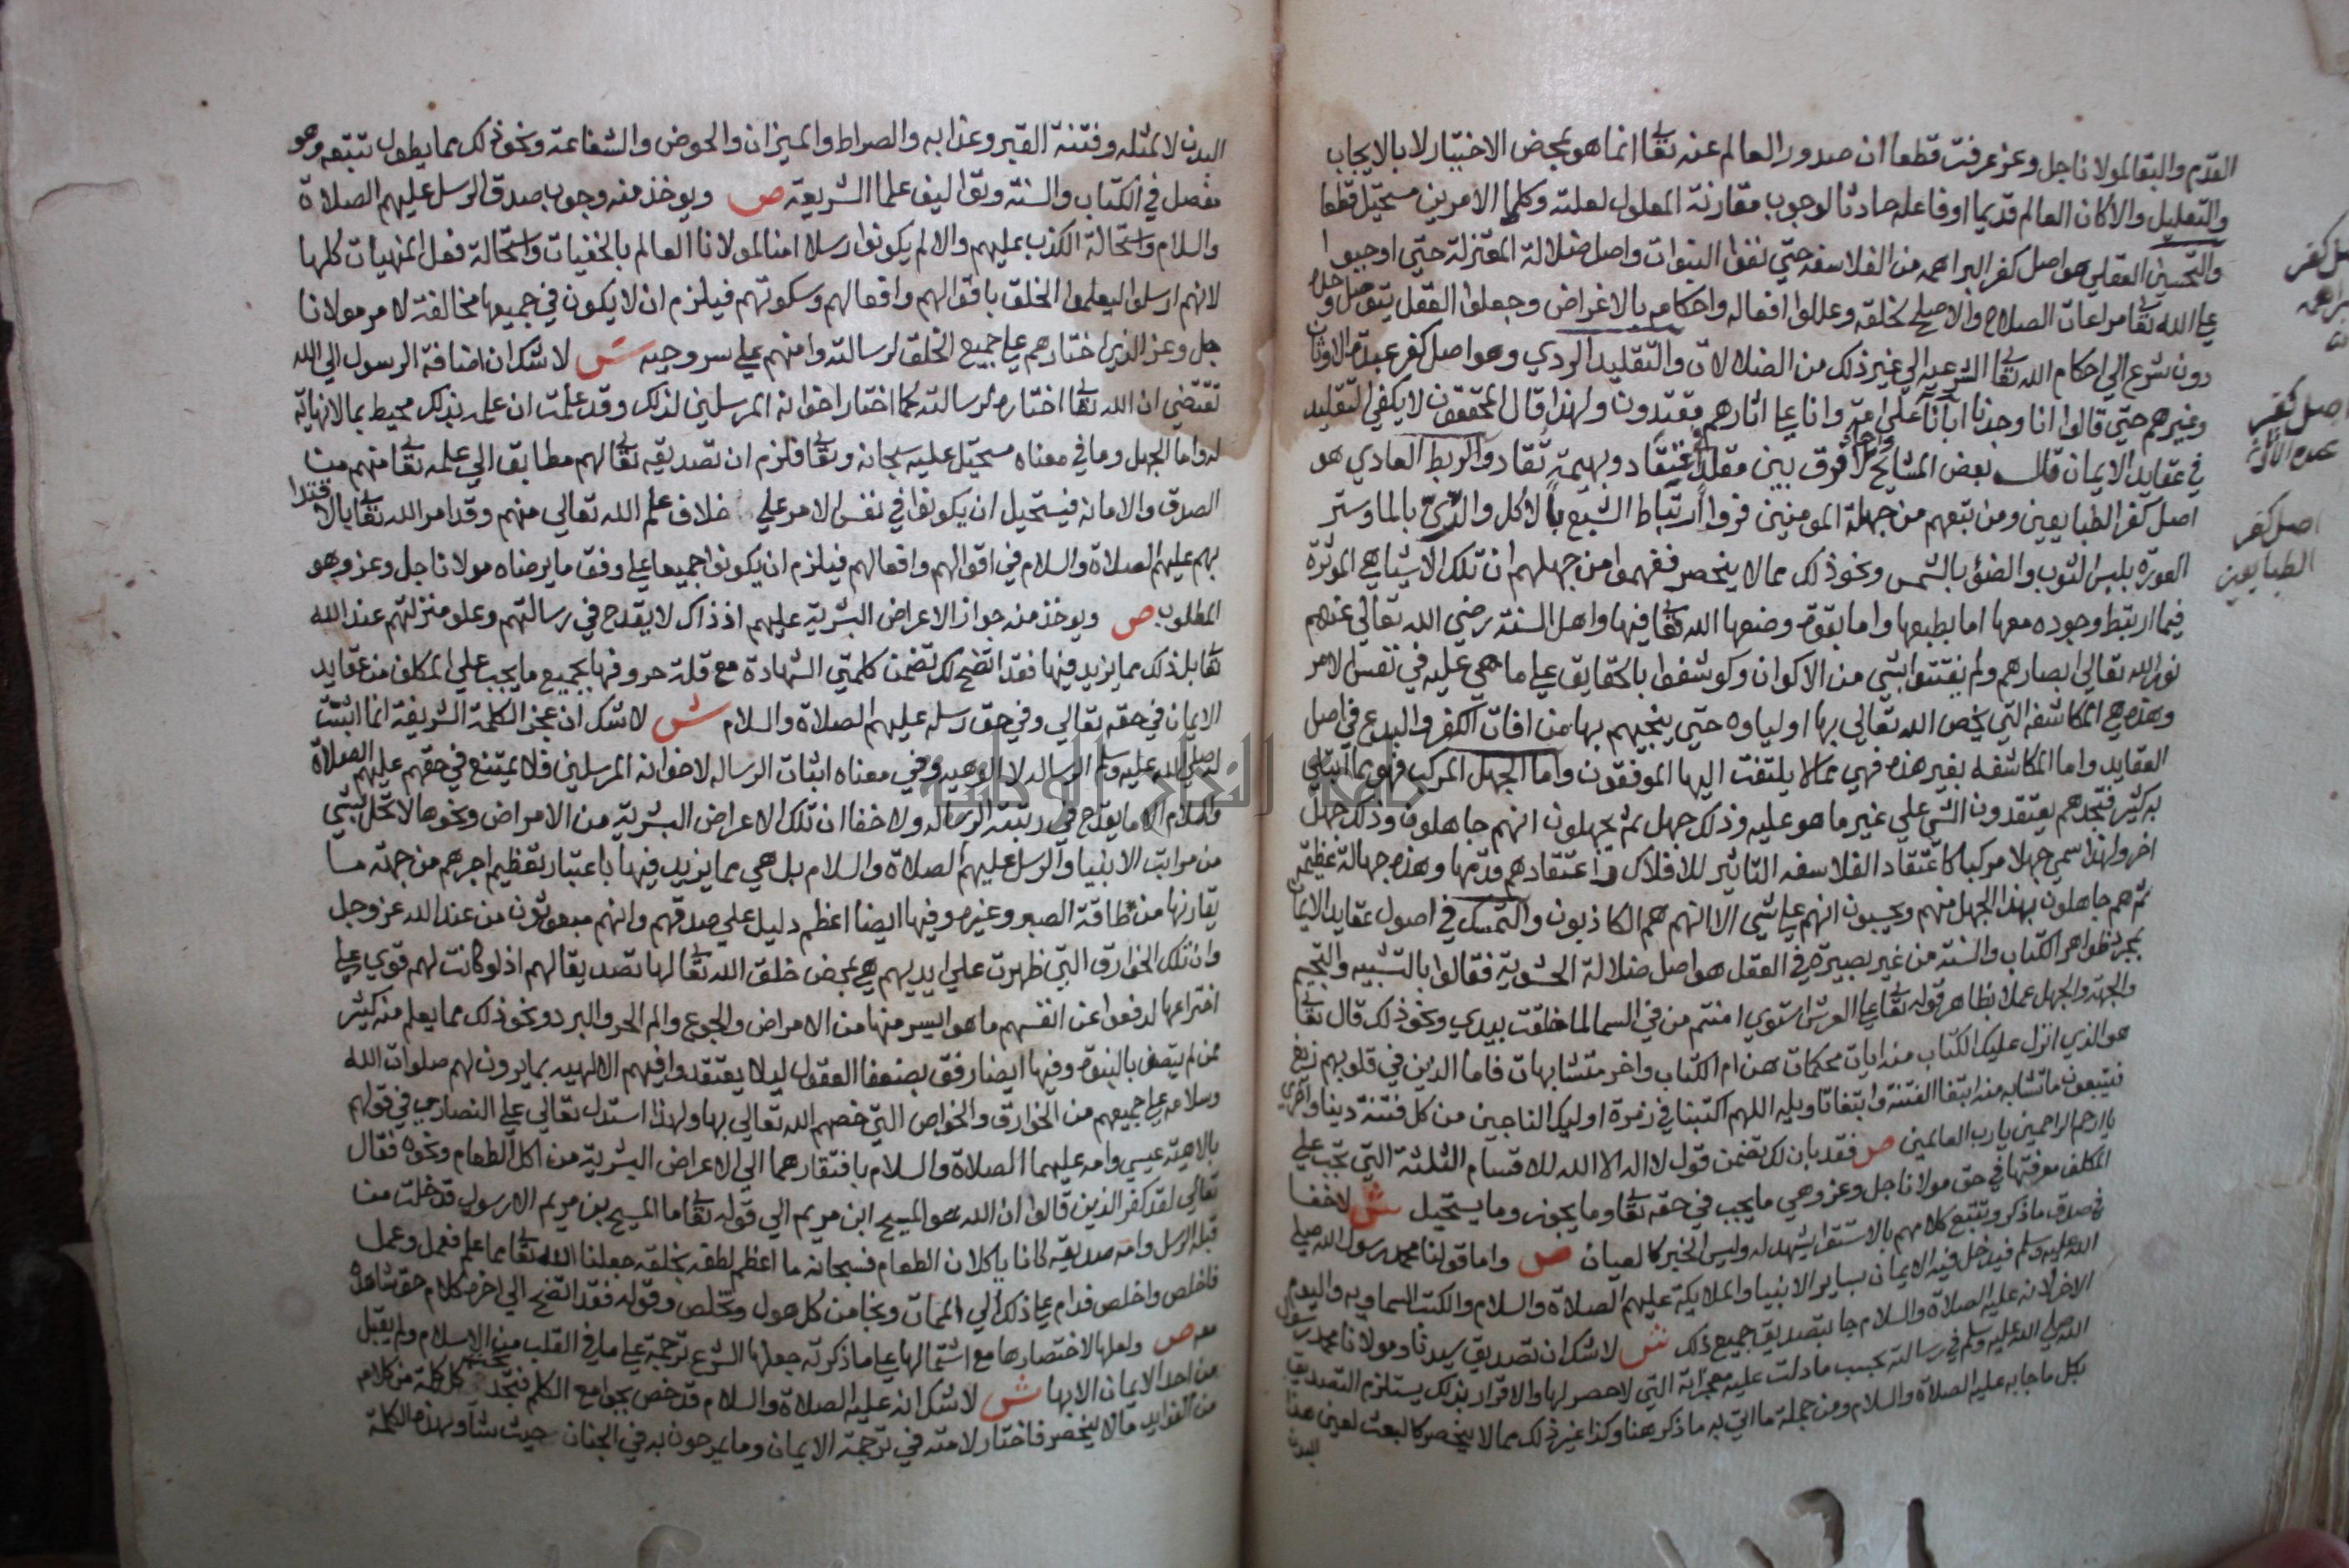 القدم والبقا لمولانا جل وعز عرفت قطعا ان صدور العالم عنه تعا انما هو بمحض الاختيار لا بالايجاب
والتعليل والا كان العالم قديما او فاعله حادثا لوجوب مقارنة المعلول لعلته وكلا الامرين مستحيل قطعا
والتحسين العقلي هو اصل كفر البراهمه من الفلاسفه حتي نفوا النبوات واصل ضلالة المعتزلة حتي اوجبوا
علي الله تعا مراعات الصلاح والاصلح لخلقه وعللوا افعاله واحكامه بالاغراض وجعلوا العقل يتوصل وحده
دون شرع الي احكام الله تعا الشرعيه الي غير ذلك من الضلالات والتقليد الردي وهو اصل كفر عبدة الاوثان
وغيرهم حتي قالوا انا وجدنا ابآنا علي امة وانا علي اثارهم مقتدون ولهذا قال المحققون لا يكفي التقليد
في عقايد الايمان قال بعض المشايخ لا فرق بين مقلد ينقاد وبهيمة تقاد والربط العادي هو
اصل كفر الطبايعين ومن تبعهم من جهلة المومنين فروا ارتباط الشبع بالاكل والري بالما وستر
العورة بلبس الثوب والضؤ بالشمس ونحو ذلك مما لا ينحصر ففهموا من جهلهم ان تلك الاشيا هي الموثرة
فيما ارتبط وجوده معها اما بطبعها واما بقوة وضعها الله تعا فيها واهل السنة رضي الله تعالي عنهم
نور الله تعالي ابصارهم ولم يفتتنوا بشي من الاكوان وكوشفوا بالحقايق علي ما هي عليه في نفس الامر
وهذه هي المكاشفه التي يخص الله تعالي بها اولياوه حتي ينجيهم بها من افات الكفر والبدع في اصل
العقايد واما المكاشفه بغير هذه فهي مما لا يلتفت اليها الموفقون واما الجهل المركب فهو مما ابتلي
به كثير فتجدهم يعتقدون الشي علي غير ما هو عليه وذلك جهل ثم يجهلون انهم جاهلون وذلك جهل
اخر ولهذا سمي جهلا مركبا كاعتقاد الفلاسفه التاثير للافلاك واعتقادهم قدمها وهذه جهالة عظيمه
ثم هم جاهلون بهذا الجهل منهم ويحسبون انهم علي شي الا انهم هم الكاذبون والتمسك في اصول عقايد الايمان
بمجرد ظواهر الكتاب والسنة من غير بصيرة في العقل هو اصل ضلالة الحشوية فقالوا بالتشبيه والتجسيم
والجهة والجهل عملا بظاهر قوله تعا علي العرش استوي امنتم من في السما لما خلقت بيدي ونحو ذلك قال تعا
هو الذي انزل عليك الكتاب منه ايات محكمات هن ام الكتاب واخر متشابهات فاما الذين في قلوبهم زيغ
فيتبعون ما تشابه منه ابتغا الفتنة وابتغا تاويله اللهم اكتبنا في زمرة اوليك الناجين من كل فتنة دينا واخري
يا ارحم الراحمين يا رب العالمين ص فقد بان لك تضمن قول لا اله الا الله للاقسام الثلثة التي تجب علي
المكلف معرفتها في حق مولانا جل وعز وهي ما يجب في حقه تعا وما يجوز وما يستحيل ش لا خفا
في صدق ما ذكر وتتبع كلامهم بالاستقرا يشهد له وليس الخبر كالعيان ص واما قولنا محمد رسول الله صلي
الله عليه وسلم فيدخل فيه الايمان بساير الانبيا والملايكة عليهم الصلاة والسلام والكتب السماويه واليوم
الاخر لانه عليه الصلاة والسلام جا بتصديق جميع ذلك ش لا شك ان تصديق سيدنا ومولانا محمد رسول
الله صلي الله عليه وسلم في رسالته بحسب ما دلت عليه معجزاته التي لا حصر لها والاقرار بذلك يستلزم التصديق
بكل ما جا به عليه الصلاة والسلام ومن جملة ما اتي به ما ذكر هنا وكذا غير ذلك مما لا ينحصر كالبعث لعين هذا
البدن
اصل كفر
البراهمه
اصل كفر
عبدة الاوثان
اصل كفر
الطبايعين
البدن لا لمثله وفتنة القبر وعذابه والصراط والميزان والحوض والشفاعة ونحو ذلك مما يطول تتبعه وهو
مفصل في الكتاب والسنة وتواليف علما الشريعة ص ويوخذ منه وجوب صدق الرسل عليهم الصلاة
والسلام واستحالة الكذب عليهم والا لم يكونوا رسلا امنا لمولانا العالم بالخفيات واستحالة فعل المنهيات كلها
لانهم ارسلوا ليعلموا الخلق باقوالهم وافعالهم وسكوتهم فيلزم ان لا يكون في جميعها مخالفة لامر مولانا
جل وعز الذي اختارهم علي جميع الخلق لرسالته وامنهم علي سر وحيه ش لا شك ان اضافة الرسول الي الله
تقتضي ان الله تعا اختاره لرسالته كما اختار اخوانه المرسلين لذلك وقد علمت ان علمه بذلك محيط بما لا نهاية
له واما الجهل وما في معناه مستحيل عليه سبحانه وتعا فلزم ان تصديقه تعا لهم مطابق الي علمه تعا منهم من
الصدق والامانة فيستحيل ان يكونوا في نفس الامر علي خلاف علم الله تعالي منهم وقد امر الله تعا بالاقتدا
بهم عليهم الصلاة والسلام في اقوالهم وافعالهم فيلزم ان يكونوا جميعا علي وفق ما يرضاه مولانا جل وعز وهو
المطلوب ص ويوخذ منه جواز الاعراض البشرية عليهم اذ ذاك لا يقدح في رسالتهم وعلو منزلتهم عند الله
تعا بل ذلك مما يزيد فيها فقد اتضح لك تضمن كلمتي الشهادة مع قلة حروفها بجميع ما يجب علي المكلف من عقايد
الايمان في حقه تعالي وفي حق رسله عليهم الصلاة والسلام ش لا شك ان عجز الكلمة الشريفة انما اثبتت
له صلي الله عليه وسلم الرساله لا الالوهيه وفي معناه اثبات الرساله لاخوانه المرسلين فلا يمتنع في حقهم عليهم الصلاة
والسلام الا ما يقدح في رتبة الرساله ولا خفا ان تلك الاعراض البشرية من الامراض ونحوها لا تخل بشي
من مراتب الانبيا والرسل عليهم الصلاة والسلام بل هي مما يزيد فيها باعتبار تعظيم اجرهم من جهة ما
يقارنها من طاقة الصبر وغيره وفيها ايضا اعظم دليل علي صدقهم وانهم مبعوثون من عند الله عز وجل
وان تلك الخوارق التي ظهرت علي ايديهم هي بمحض خلق الله تعا لها تصديقا لهم اذ لو كانت لهم قوي علي
اختراعها لدفعوا عن انفسهم ما هو ايسر منها من الامراض والجوع والم الحر والبرد ونحو ذلك مما يعلم منه كثير
ممن لم يتصف بالنبوة وفيها ايضا رفق بضعفا العقول ليلا يعتقدوا فيهم الالهيه بما يرون لهم صلوات الله
وسلامه علي جميعهم من الخوارق والخواص التي خصهم الله تعالي بها ولهذا استدل تعالي علي النصاري في قولهم
بالاهية عيسي وامه عليهما الصلاة والسلام بافتقارهما الي الاعراض البشرية من اكل الطعام ونحوه فقال
تعالي لقد كفر الذين قالوا ان الله هو المسيح ابن مريم الي قوله تعا ما المسيح بن مريم الا رسول قد خلت من
قبله الرسل وامه صديقة كانا ياكلان الطعام فسبحانه ما اعظم لطفه بخلقه جعلنا الله تعا مما علم فعمل وعمل
فاخلص واخلص فدام علي ذلك الي الممات ونجا من كل هول وتخلص وقوله فقد اتضح الي اخره كلام حق شاهده
معه ص ولعلها لاختصارها مع اشتمالها علي ما ذكرته جعلها الشرع ترجمة علي ما في القلب من الاسلام ولم يقبل
من احد الايمان الا بها ش لا شك انه عليه الصلاة والسلام قد خص بجوامع الكلم فتجد كل كلمة من كلامه
من الفوايد ما لا ينحصر فاختار لامته في ترجمة الايمان وما يمرحون به في الجنان حيث شآو بهذه الكلمة
جامعة النجاح الوطنية